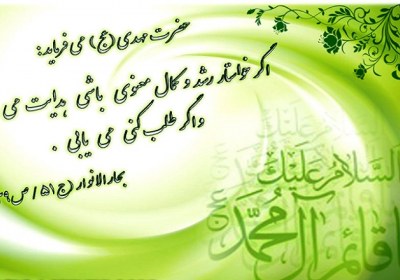 حضرت مهدی (عج) می فرماید:
اگر خواستار رشد و کمال معنوی باشی هدایت می
و اگر طلب کنی می یابی .
بحارالانوار (ج ۵۱ / ص
السَّلامُ عَلَیْكَ
السَّلامُ عَلَیْكَ
یا قائم آل محمد